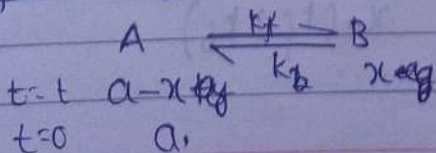 A ⇌ B
kf
kb
t=t a-x x
t=0 a.